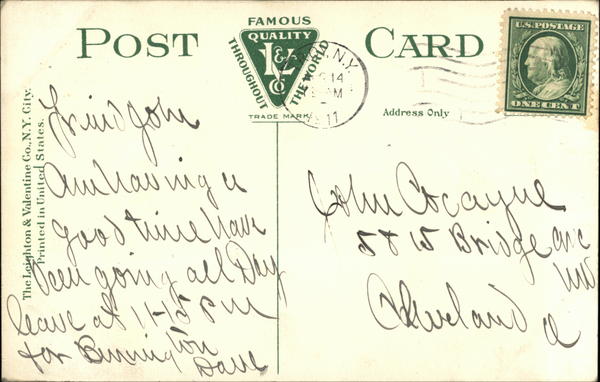 FAMOUS
QUALITY
THROUGHOUT
THE WORLD
L & V
Co
TRADE MARK
POST CARD
Address Only
The Leighton & Valentine Co., N.Y. City.
Printed in United States.
N.Y.
14
AM
11
U.S. POSTAGE
ONE CENT
Friend John
Am having a
good time have
been going all Day
leave at 11-15 PM
for
Dave
John Cocayne
5815 Bridge ave
NW
Cleveland O